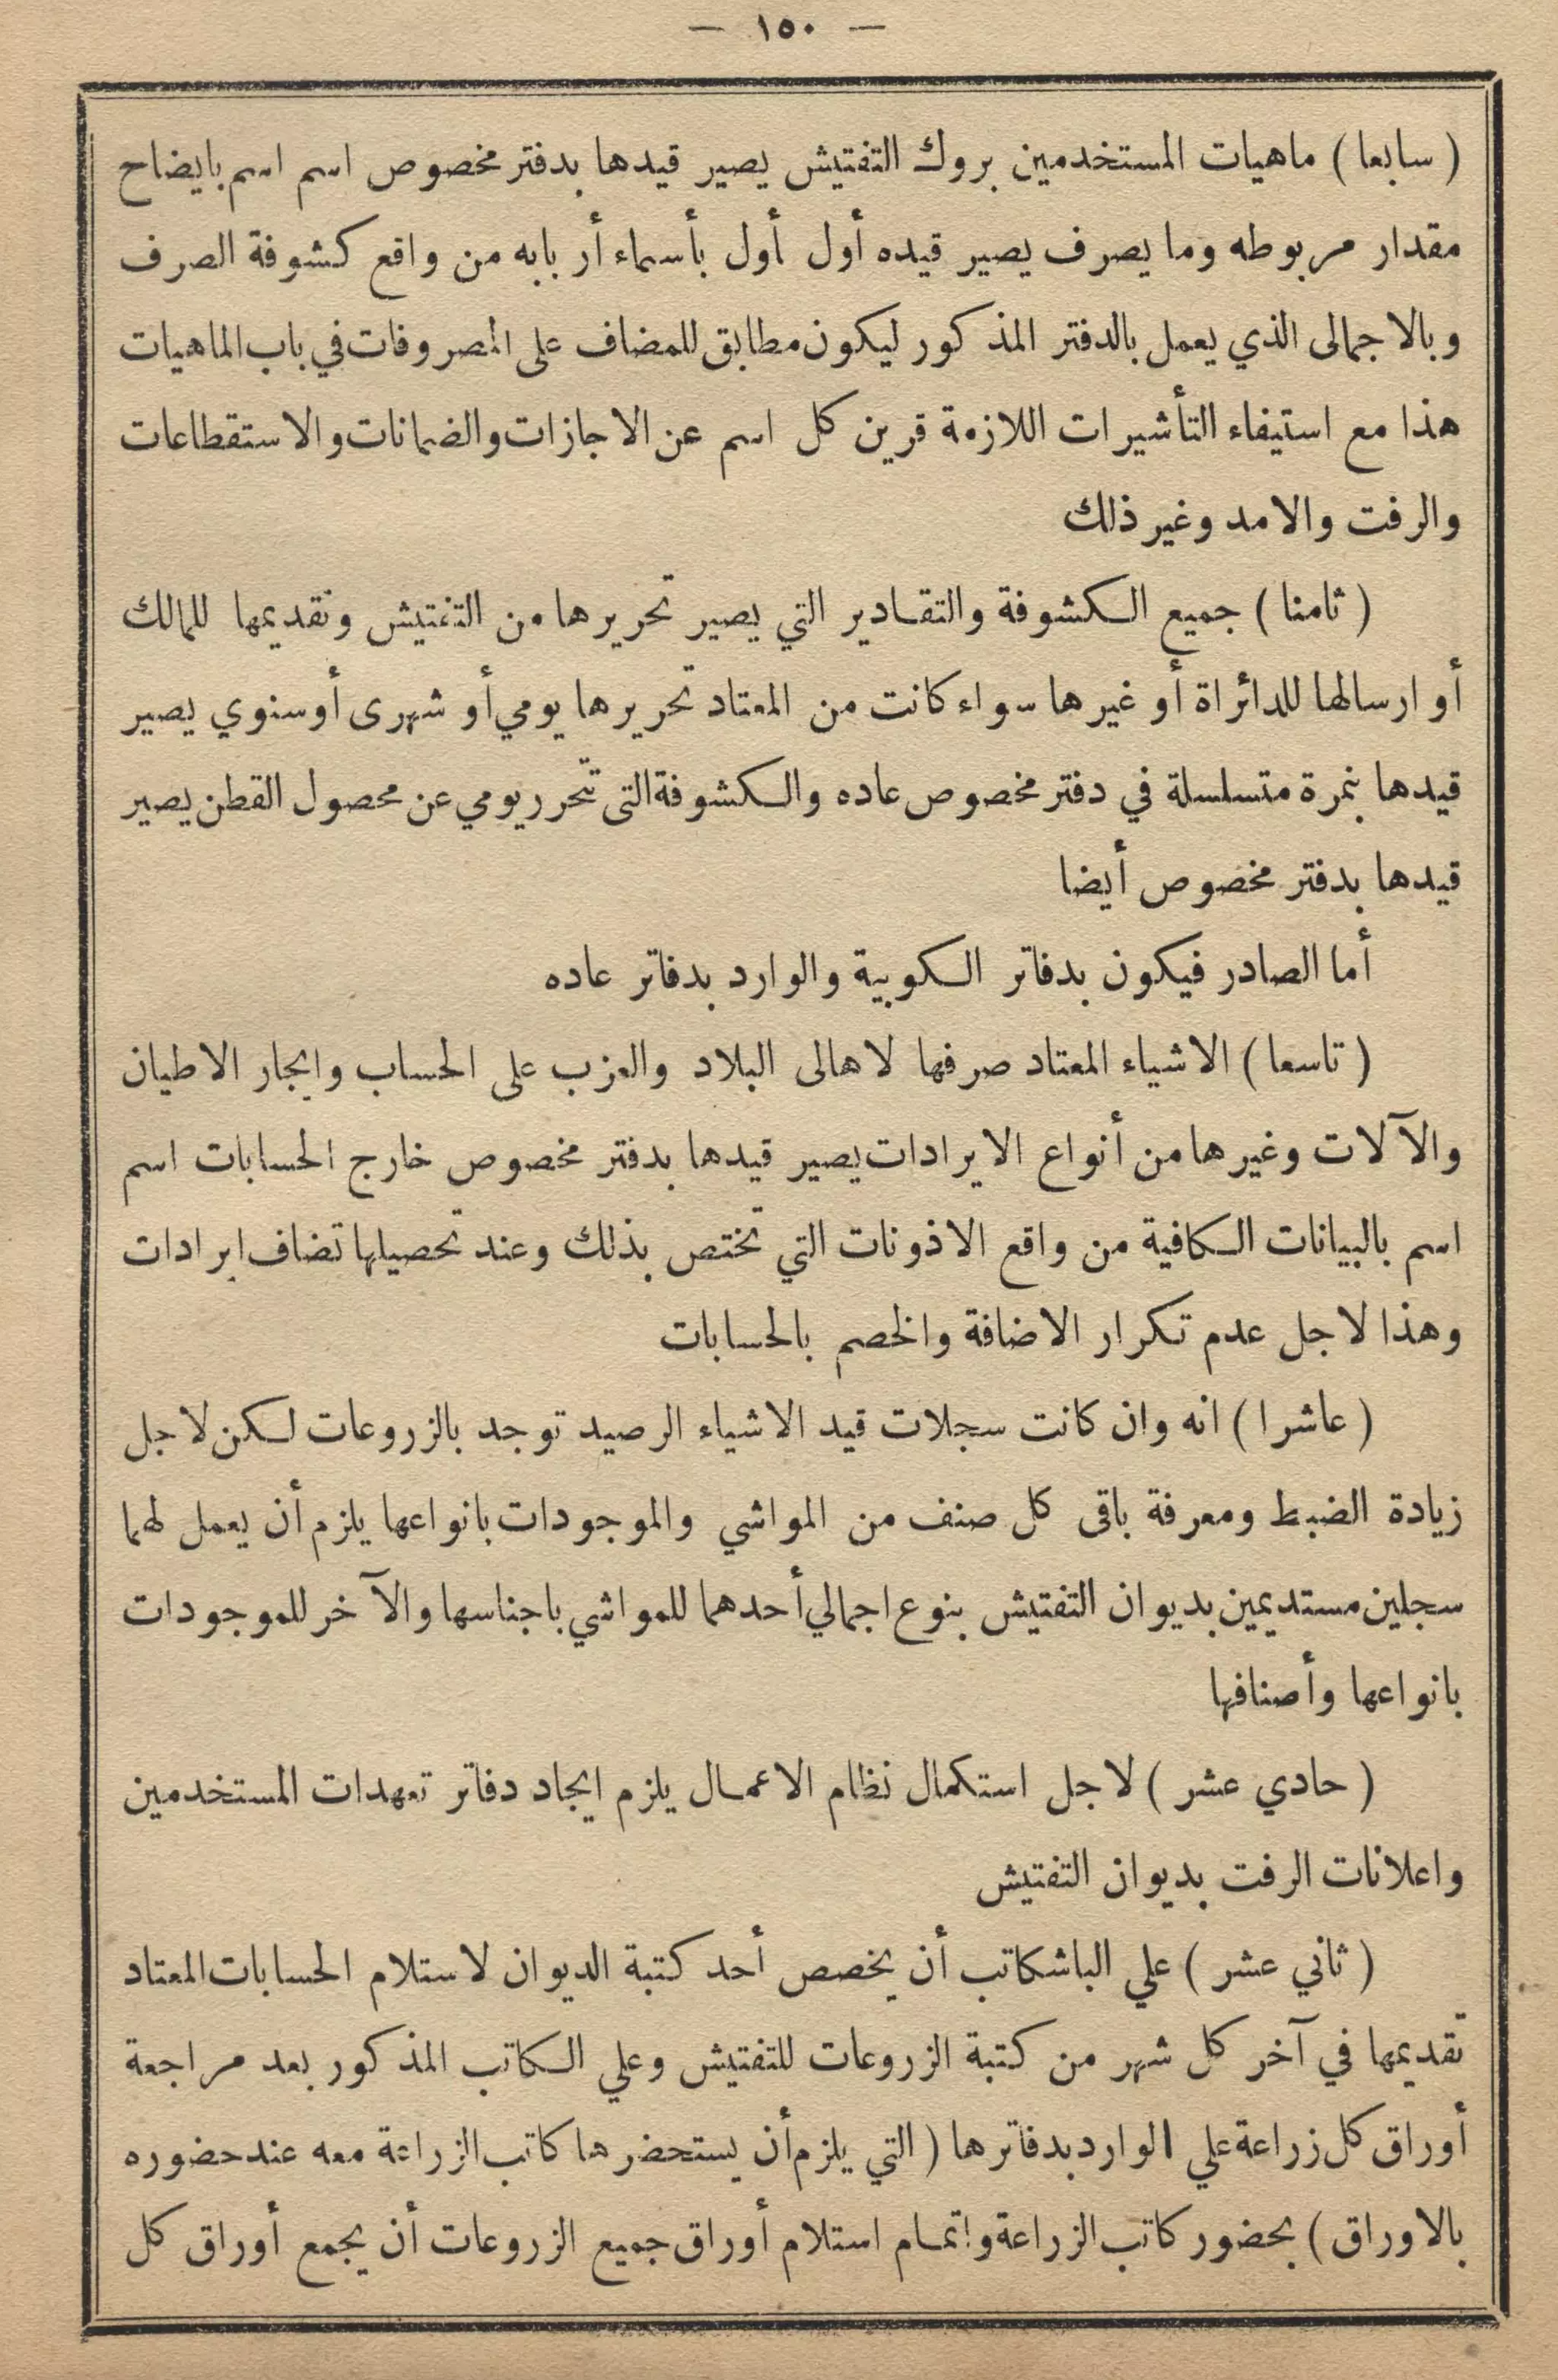 — ١٥٠ —
( سابعا ) ماهيات المستخدمين بروك التفتيش يصير قيدها بدفتر مخصوص اسم اسم بايضاح
مقدار مربوطه وما يصرف يصير قيده أول أول بأسماء أربابه من واقع كشوفة الصرف
وبالاجمالى الذي يعمل بالدفتر المذكور ليكون مطابق للمضاف على المصروفات في باب الماهيات
هذا مع استيفاء التأشيرات اللازمة قرين كل اسم عن الاجازات والضمانات والاستقطاعات
والرفت والامد وغير ذلك
( ثامنا ) جميع الكشوفة والتقادير التي يصير تحريرها من التفتيش وتقديمها للمالك
أو ارسالها للدائراة أو غيرها سواء كانت من المعتاد تحريرها يومي أو شهرى أو سنوي يصير
قيدها بنمرة متسلسلة في دفتر مخصوص عاده والكشوفة التى تتحرر يومي عن محصول القطن يصير
قيدها بدفتر مخصوص أيضا
أما الصادر فيكون بدفاتر الكوبية والوارد بدفاتر عاده
( تاسعا ) الاشياء المعتاد صرفها لاهالى البلاد والعزب على الحساب وايجار الاطيان
والآلات وغيرها من أنواع الايرادات يصير قيدها بدفتر مخصوص خارج الحسابات اسم
اسم بالبيانات الكافية من واقع الاذونات التي تختص بذلك وعند تحصيلها تضاف ايرادات
وهذا لاجل عدم تكرار الاضافة والخصم بالحسابات
( عاشرا ) انه وان كانت سجلات قيد الاشياء الرصيد توجد بالزروعات لكن لاجل
زيادة الضبط ومعرفة باقى كل صنف من المواشي والموجودات بانواعها يلزم أن يعمل لهما
سجلين مستديمين بديوان التفتيش بنوع اجمالي أحدهما للمواشي باجناسها والآخر للموجودات
بانواعها وأصنافها
( حادي عشر ) لاجل استكمال نظام الاعمال يلزم ايجاد دفاتر تعهدات المستخدمين
واعلانات الرفت بديوان التفتيش
( ثاني عشر ) علي الباشكاتب أن يخصص أحد كتبة الديوان لاستلام الحسابات المعتاد
تقديمها في آخر كل شهر من كتبة الزروعات للتفتيش وعلي الكاتب المذكور بعد مراجعة
أوراق كل زراعة علي الوارد بدفاترها ( التي يلزم أن يستحضرها كاتب الزراعة معه عند حضوره
بالاوراق ) بحضور كاتب الزراعة واتمام استلام أوراق جميع الزروعات أن يجمع أوراق كل